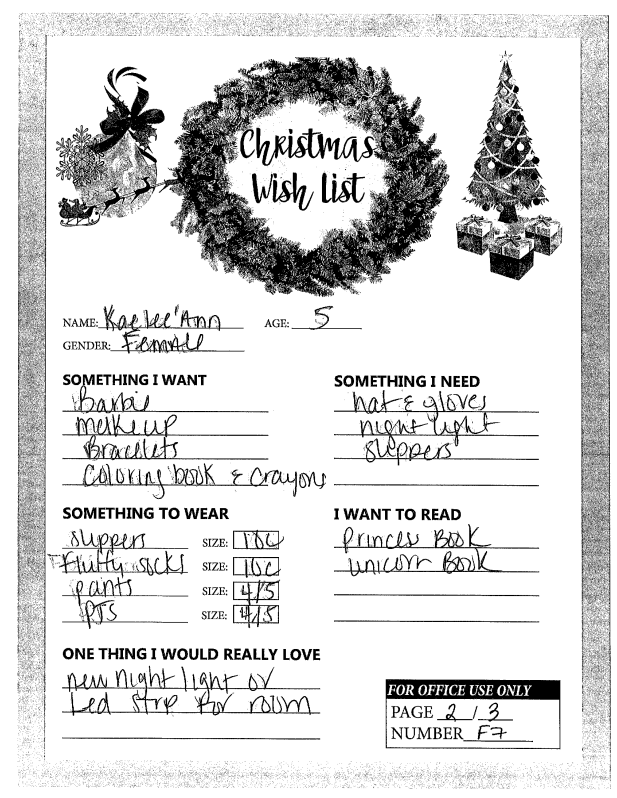 Christmas
Wish List
NAME: Kaelee'Ann AGE: 5
GENDER: Female
SOMETHING I WANT
Barbie
makeup
Bracelets
Coloring book & Crayons
SOMETHING I NEED
hat & gloves
night light
slippers
SOMETHING TO WEAR
slippers SIZE: 10C
Fluffy socks SIZE: 10C
pants SIZE: 4/5
PJS SIZE: 4/5
I WANT TO READ
Princes Book
unicorn Book
ONE THING I WOULD REALLY LOVE
new night light or
Led strip for room
FOR OFFICE USE ONLY
PAGE 2 / 3
NUMBER F7